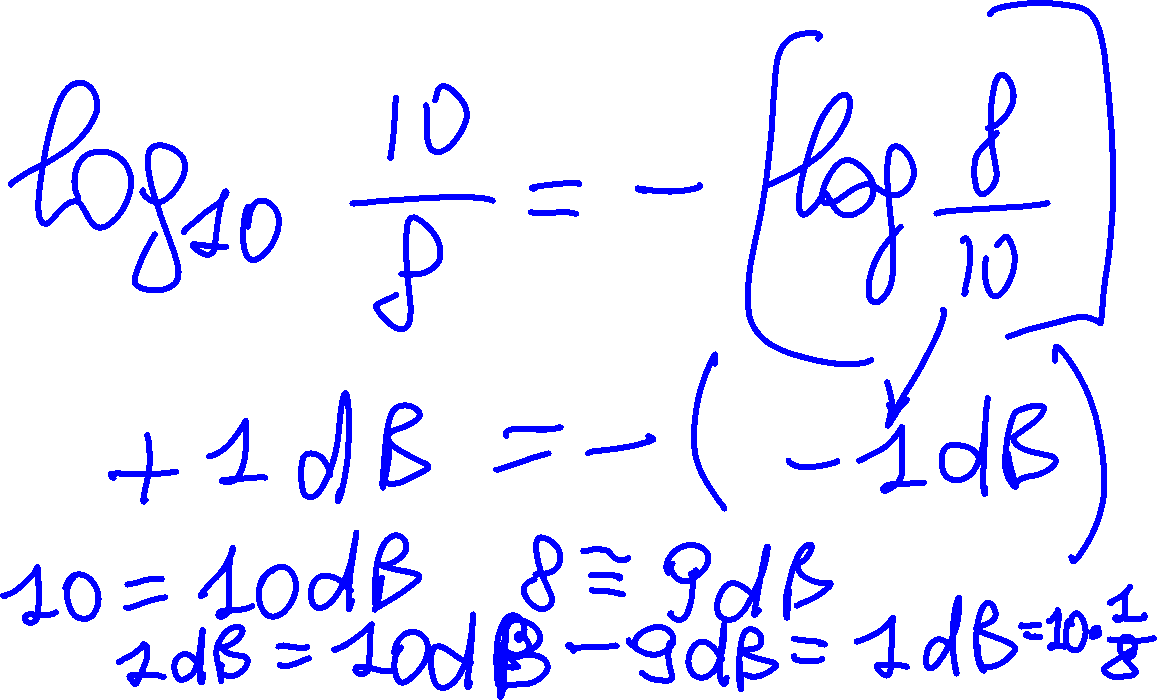 log₁₀ 10/8 = - [log 8/10]
+ 1 dB = - (- 1 dB)
10 = 10 dB 8 ≅ 9 dB
1 dB = 10 dB - 9 dB = 1 dB = 10 · 1/8